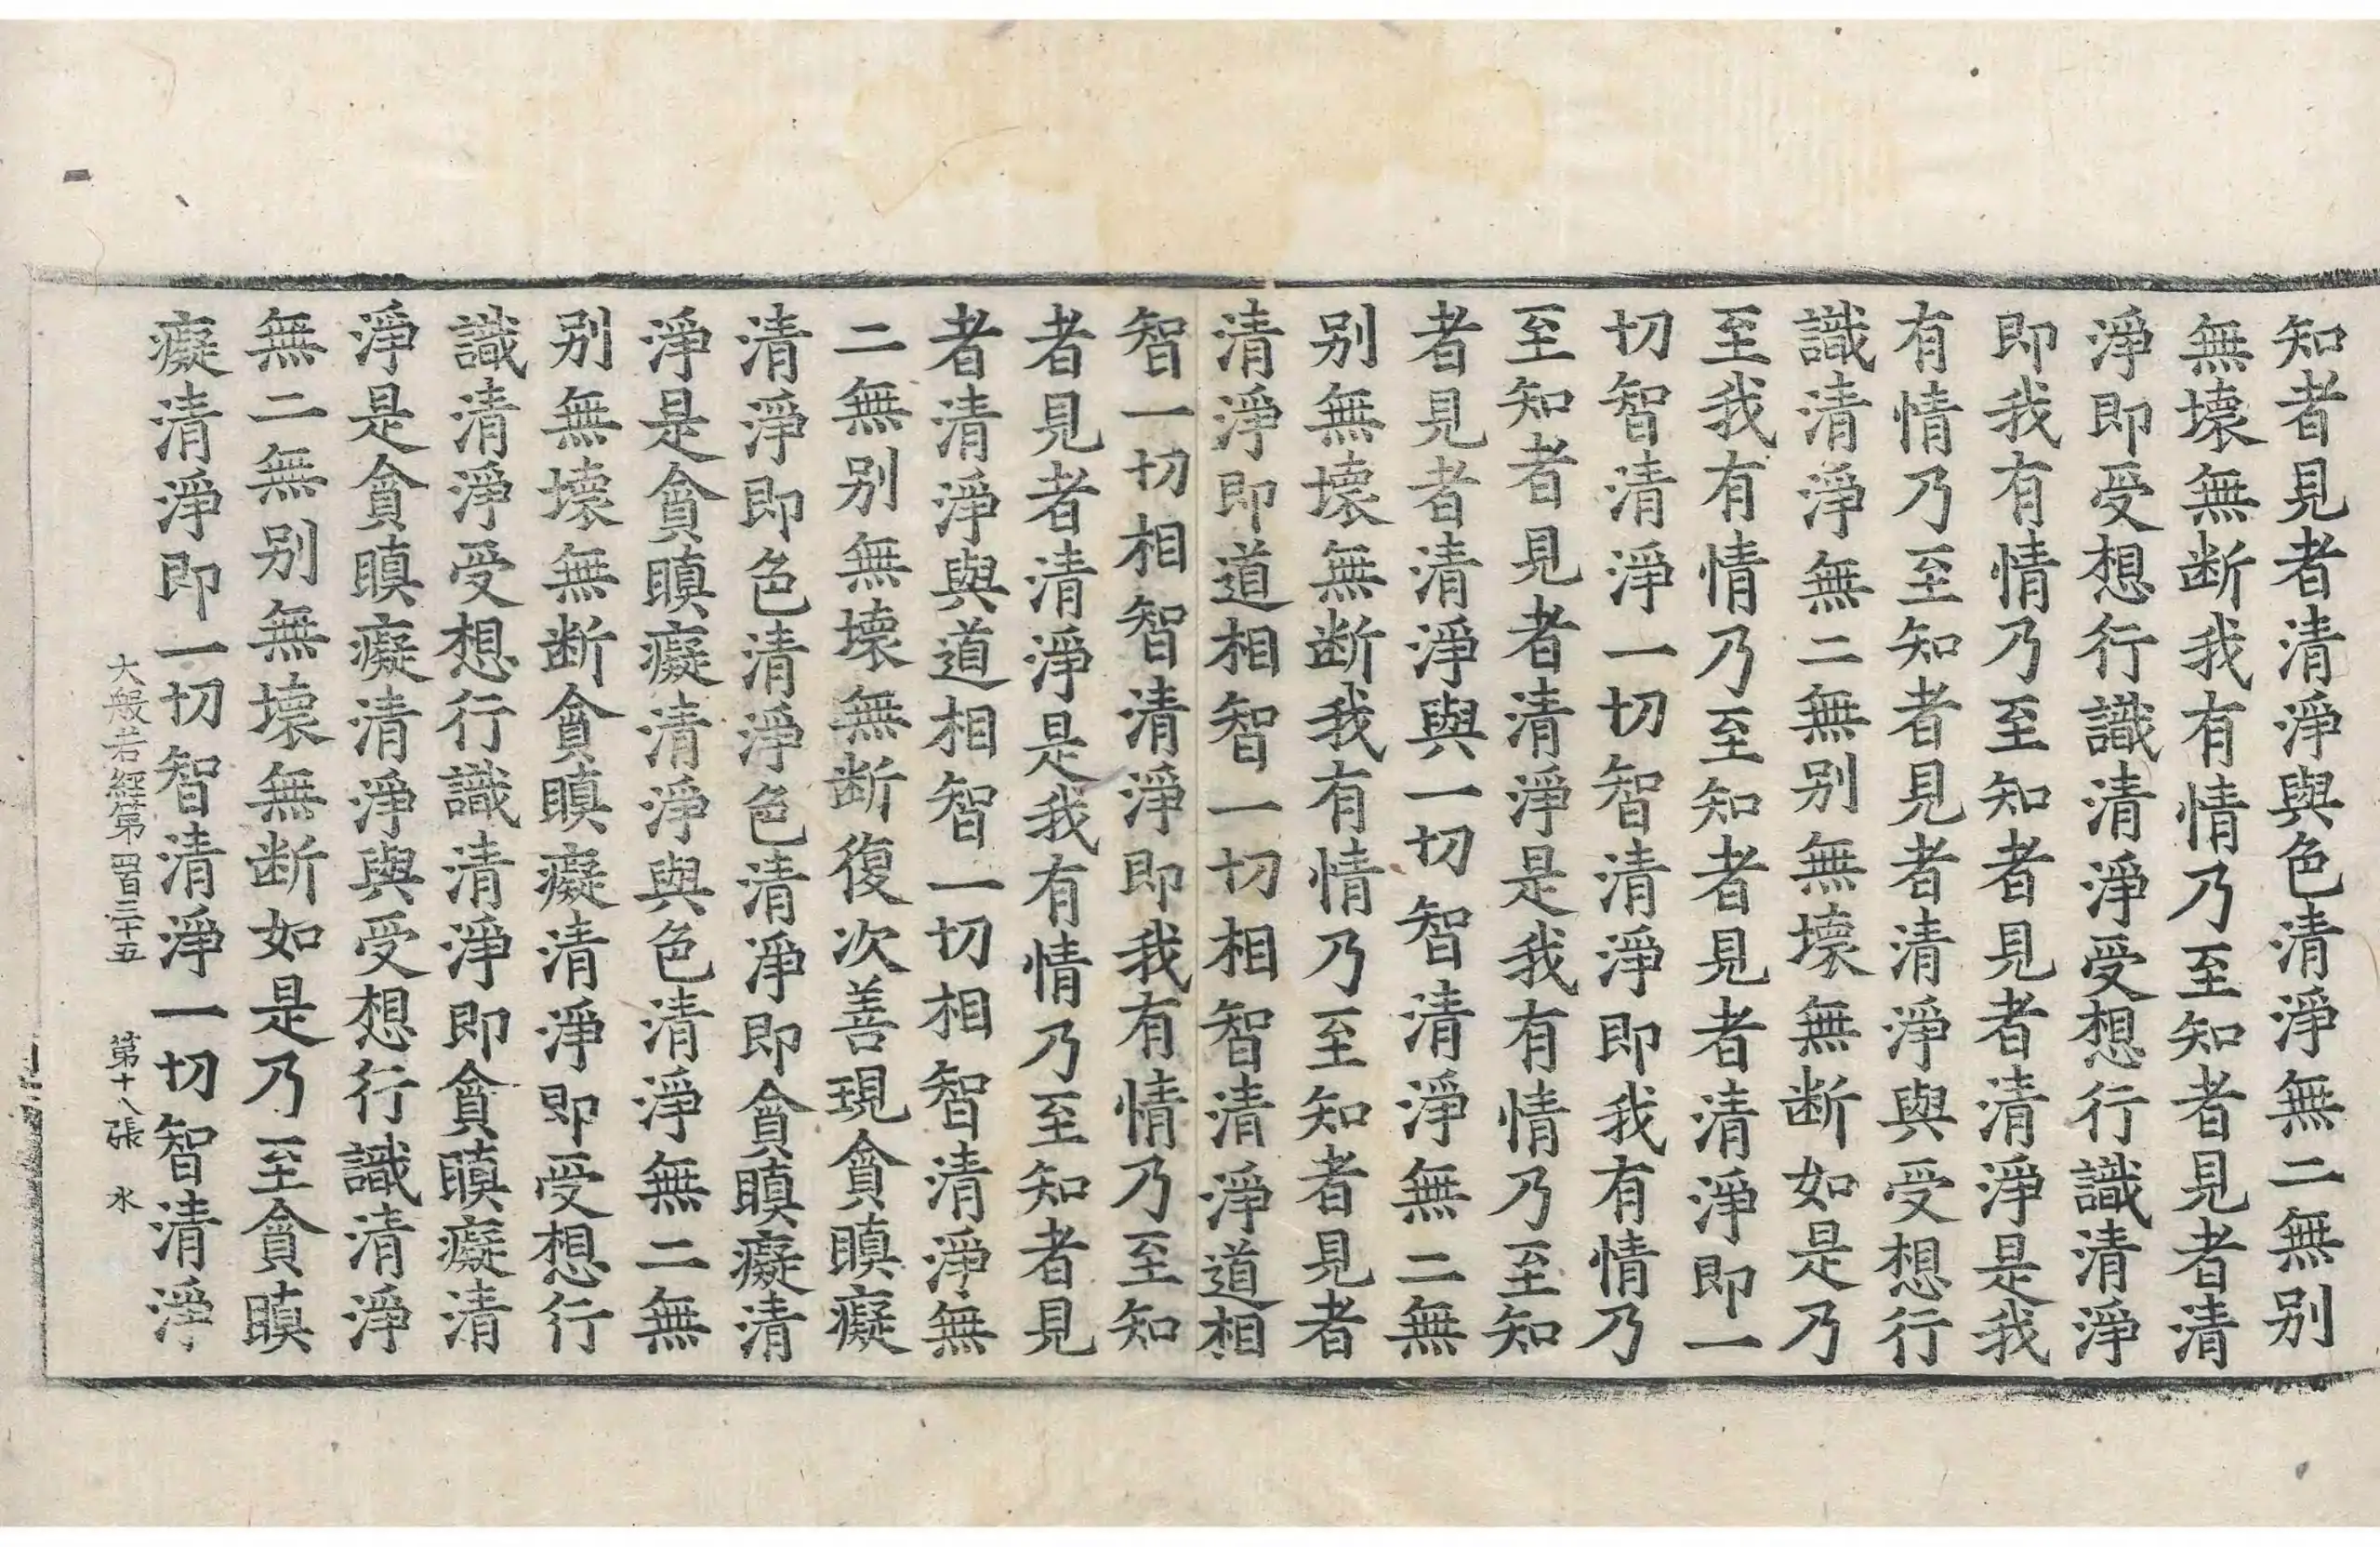 知者見者清淨與色清淨無二無别
無壞無断我有情乃至知者見者清
淨即受想行識清淨受想行識清淨
即我有情乃至知者見者清淨是我
有情乃至知者見者清淨與受想行
識清淨無二無别無壞無断如是乃
至我有情乃至知者見者清淨即一
切智清淨一切智清淨即我有情乃
至知者見者清淨是我有情乃至知
者見者清淨與一切智清淨無二無
别無壞無断我有情乃至知者見者
清淨即道相智一切相智清淨道相
智一切相智清淨即我有情乃至知
者見者清淨是我有情乃至知者見
者清淨與道相智一切相智清淨無
二無别無壞無断復次善現貪瞋癡
清淨即色清淨色清淨即貪瞋癡清
淨是貪瞋癡清淨與色清淨無二無
别無壞無断貪瞋癡清淨即受想行
識清淨受想行識清淨即貪瞋癡清
淨是貪瞋癡清淨與受想行識清淨
無二無别無壞無断如是乃至貪瞋
癡清淨即一切智清淨一切智清淨
大般若經第四百三十五 第十八張 水